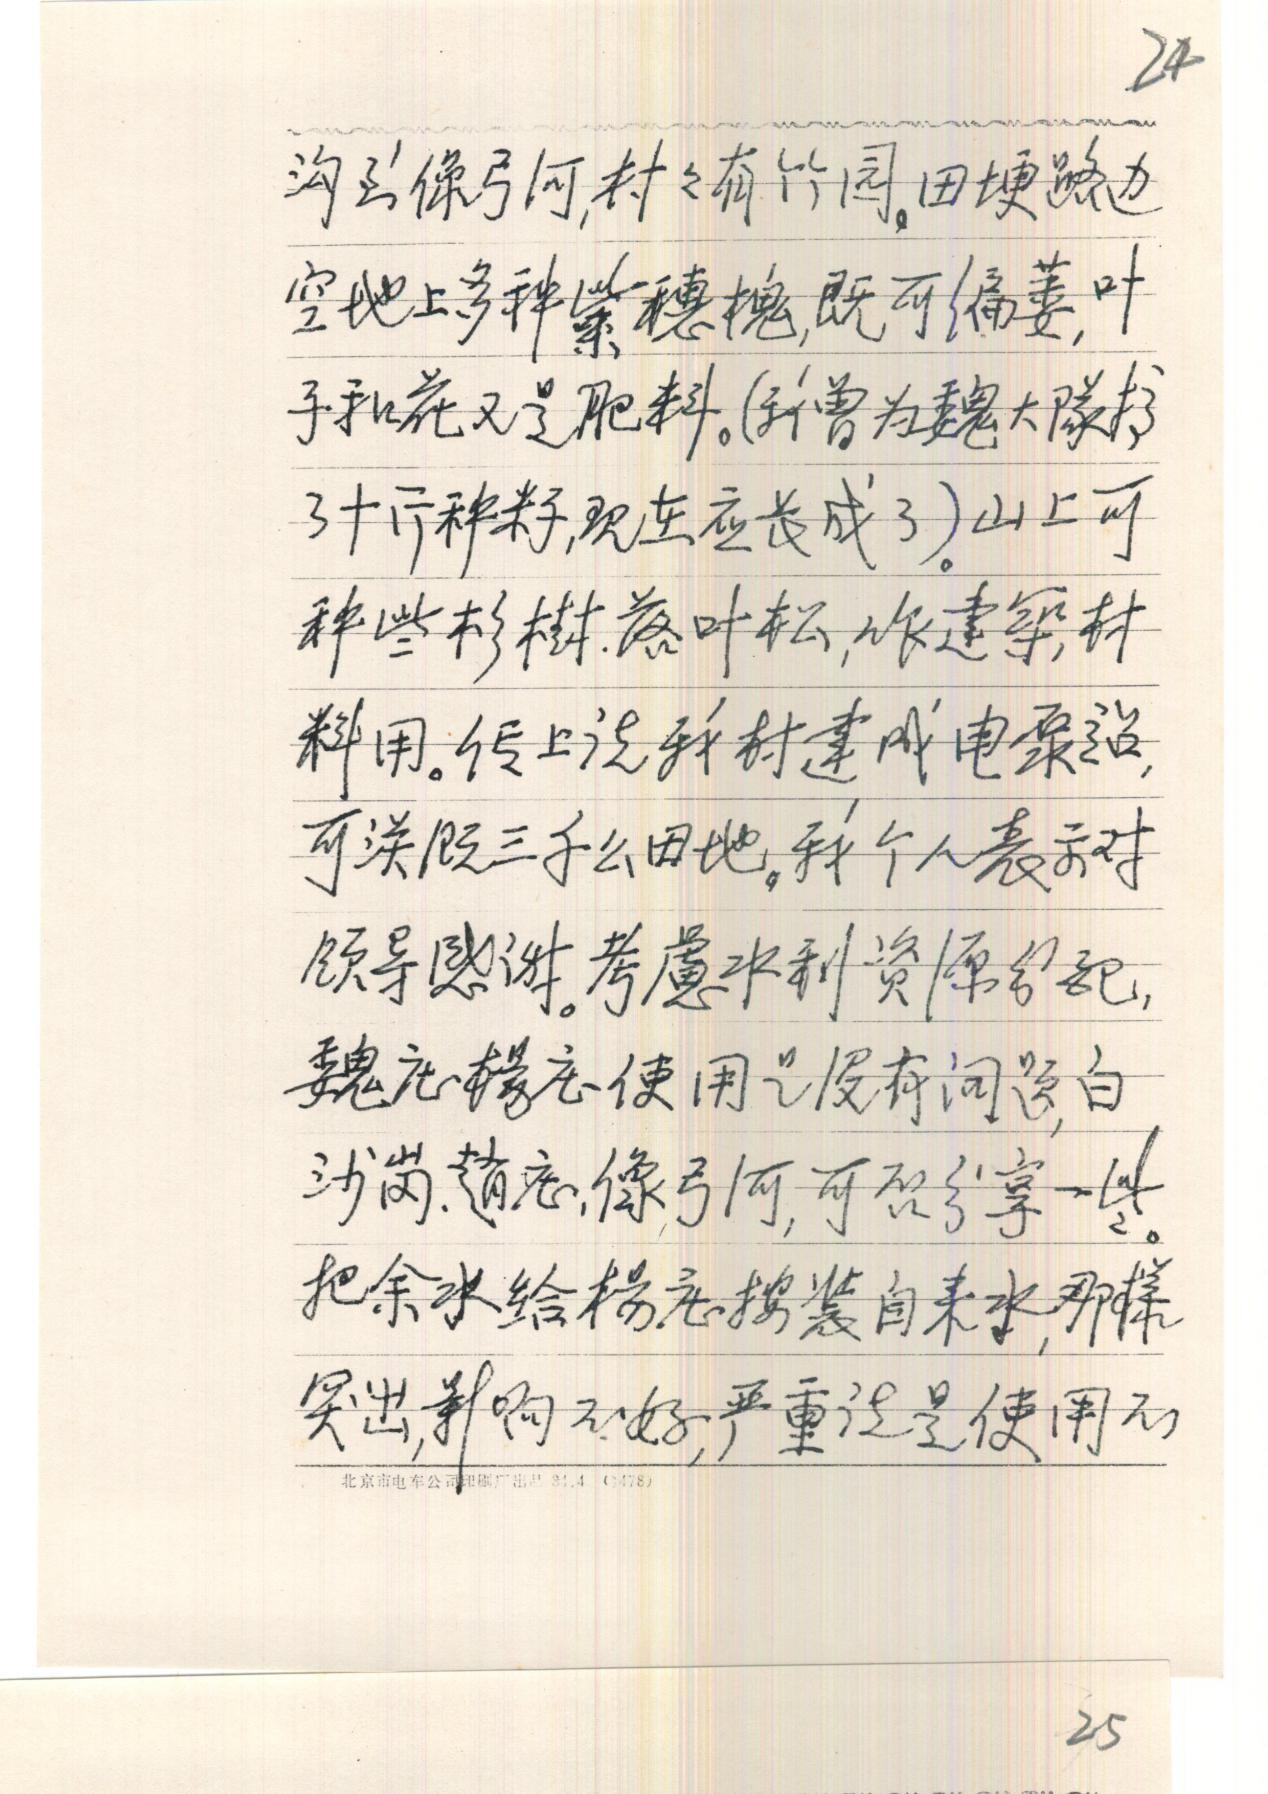 24
沟到像弓河,村々有竹园。田埂路边
空地上多种紫穗槐,既可编蒌,叶
子和花又是肥料。(我曾为魏大隊找
了十斤种籽,现在应长成了)。山上可
种些杉樹.落叶松,作建築材
料用。信上说我村建成电泵站,
可灌溉三千亩田地。我个人表示对
领导感谢。考慮水利资源分配,
魏庄.楊庄使用是没有问题,白
沙岗.趙庄,像弓河,可否分享一些。
把余水给楊庄按装自来水,那樣
突出,影响不好,严重说是使用不
北京市电车公司印刷厂出品 81.4 (1478)
25